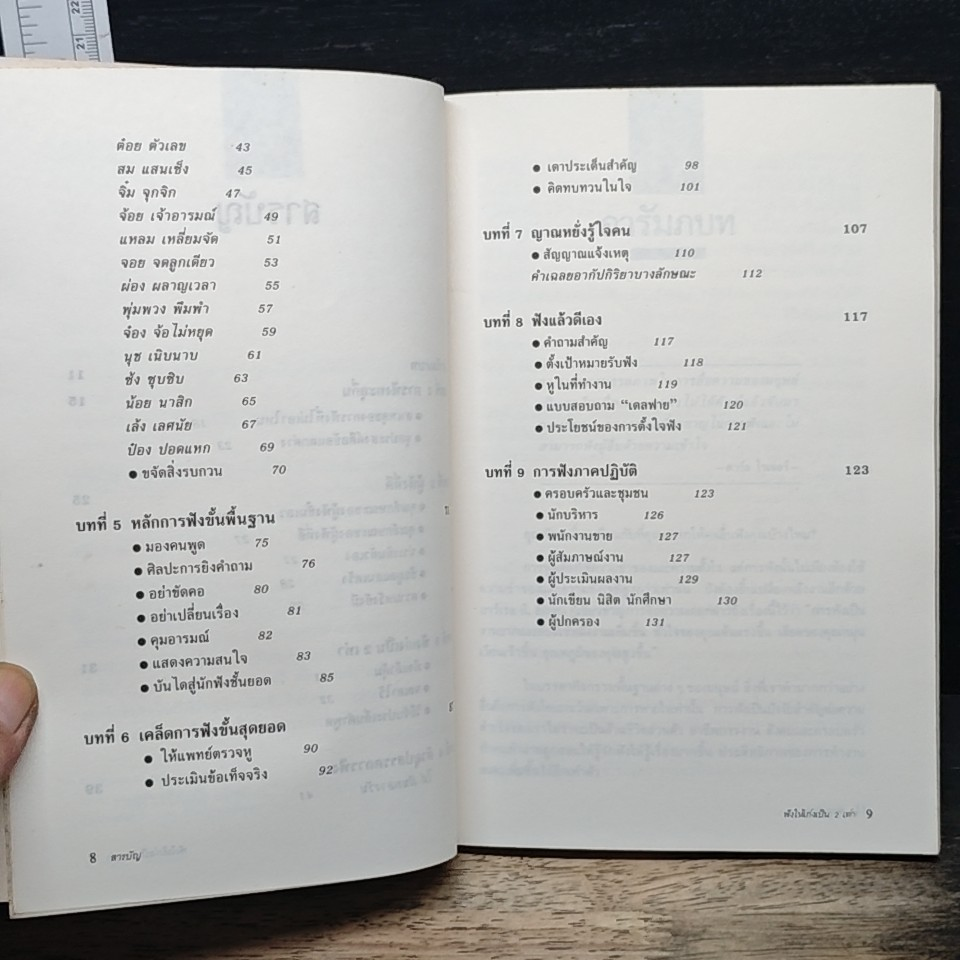 ต๋อย ตัวเลข 43
สม แสนเซ็ง 45
จิ๋ม จุกจิก 47
จ้อย เจ้าอารมณ์ 49
แหลม เหลี่ยมจัด 51
จอย จดลูกเดียว 53
ผ่อง ผลาญเวลา 55
พุ่มพวง พึมพำ 57
จ๋อง จ้อไม่หยุด 59
นุช เนิบนาบ 61
ซัง ซุบซิบ 63
น้อย นาสิก 65
เล้ง เลศนัย 67
ป๋อง ปอดแหก 69
● ขจัดสิ่งรบกวน 70
บทที่ 5 หลักการฟังขั้นพื้นฐาน
● มองคนพูด 75
● ศิลปะการยิงคำถาม 76
● อย่าขัดคอ 80
● อย่าเปลี่ยนเรื่อง 81
● คุมอารมณ์ 82
● แสดงความสนใจ 83
● บันไดสู่นักฟังชั้นยอด 85
บทที่ 6 เคล็ดการฟังขั้นสุดยอด
● ให้แพทย์ตรวจหู 90
● ประเมินข้อเท็จจริง 92
8 สารบัญ
● เดาประเด็นสำคัญ 98
● คิดทบทวนในใจ 101
บทที่ 7 ญาณหยั่งรู้ใจคน 107
● สัญญาณแจ้งเหตุ 110
คำเฉลยอากัปกิริยาบางลักษณะ 112
บทที่ 8 ฟังแล้วดีเอง 117
● คำถามสำคัญ 117
● ตั้งเป้าหมายรับฟัง 118
● หูในที่ทำงาน 119
● แบบสอบถาม “เดลฟาย” 120
● ประโยชน์ของการตั้งใจฟัง 121
บทที่ 9 การฟังภาคปฏิบัติ 123
● ครอบครัวและชุมชน 123
● นักบริหาร 126
● พนักงานขาย 127
● ผู้สัมภาษณ์งาน 127
● ผู้ประเมินผลงาน 129
● นักเขียน นิสิต นักศึกษา 130
● ผู้ปกครอง 131
ฟังให้เก่งเป็น 2 เท่า 9
22
21